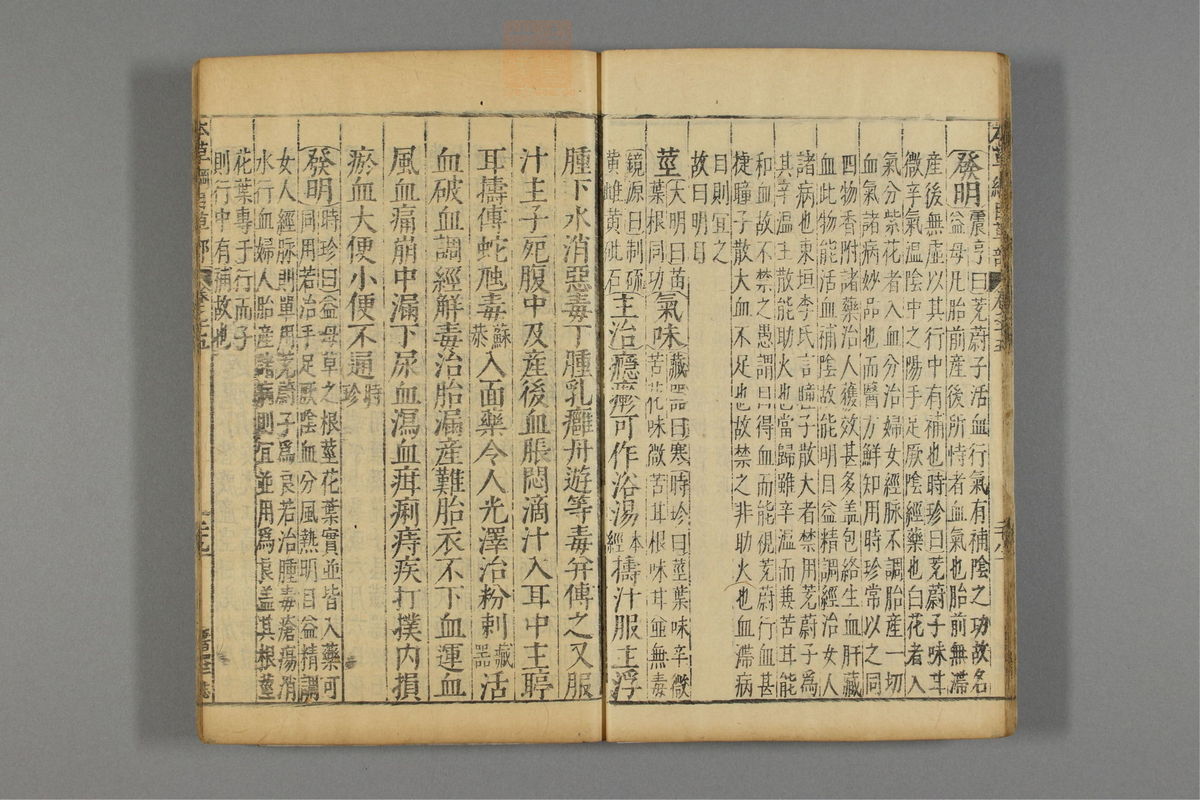 本草綱目草部 卷之十五
發明震亨曰茺蔚子活血行氣有補陰之功故名
益母凡胎前產後所恃者血氣也胎前無滯
產後無虛以其行中有補也時珍曰茺蔚子味甘
微辛氣溫陰中之陽手足厥陰經藥也白花者入
氣分紫花者入血分治婦女經脉不調胎產一切
血氣諸病妙品也而醫方鮮知用時珍常以之同
四物香附諸藥治人獲效甚多盖包絡生血肝藏
血此物能活血補陰故能明目益精調經治女人
諸病也東垣李氏言瞳子散大者禁用茺蔚子爲
其辛溫主散能助火也當歸雖辛溫而兼苦甘能
和血故不禁之愚謂目得血而能視茺蔚行血甚
捷瞳子散大血不足也故禁之非助火也血滯病
目則宜之
故曰明目
莖大明曰苗
葉根同功
氣味藏器曰寒時珍曰莖葉味辛微
苦花味微苦甘根味甘並無毒
鏡源曰制硫
黃雌黃砒石
主治癮𤺋可作浴湯本經擣汁服主浮
腫下水消惡毒丁腫乳癰丹遊等毒并傳之又服
汁主子死腹中及產後血脹悶滴汁入耳中主聤
耳擣傅蛇虺毒蘇恭入面藥令人光澤治粉刺藏器活
血破血調經解毒治胎漏產難胎衣不下血運血
風血痛崩中漏下尿血瀉血疳痢痔疾打撲內損
瘀血大便小便不通時珍
發明時珍曰益母草之根莖花葉實並皆入藥可
同用若治手足厥陰血分風熱明目益精調
女人經脉則單用茺蔚子爲良若治腫毒瘡瘍消
水行血婦人胎產諸病則宜並用爲良盖其根莖
花葉專于行而子
則行中有補故也
本草綱目草部 卷之十五